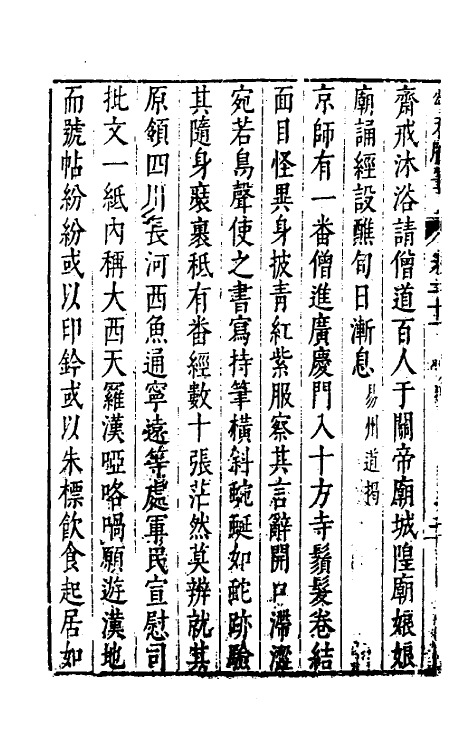 齋戒沐浴請僧道百人于關帝廟城隍廟娘娘
廟誦經設醮旬日漸息易州道揭
京師有一番僧進廣慶門入十方寺鬚髮卷結
面目怪異身披青紅紫服察其言辭開口滯澀
宛若鳥聲使之書寫持筆橫斜蜿蜒如蛇跡驗
其隨身褎裹秪有番經數十張茫然莫辨就其
原領四川長河西魚通寧遠等處軍民宣慰司
批文一紙內稱大西天羅漢啞咯喎願遊漢地
而號帖紛紛或以印鈐或以朱標飲食起居如